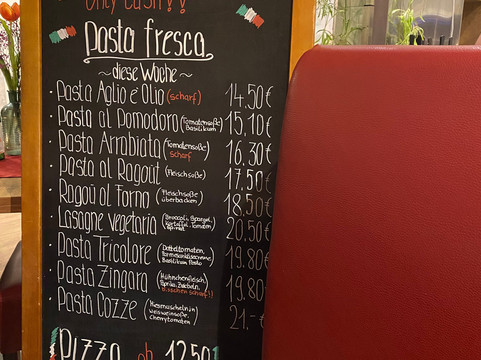 Only cash!!
Pasta fresca
~ diese Woche ~
· Pasta Aglio e Olio (scharf) 14.50€
· Pasta al Pomodoro (Tomatensoße Basilikum) 15,10€
· Pasta Arrabiata (Tomatensoße scharf) 16,30€
· Pasta al Ragout (Fleischsoße) 17,50€
· Ragou al Forno (Fleischsoße überbacken) 18.50€
· Lasagne vegetaria (Broccoli, Spargel, Kartoffel, Tomaten) 20,50€
· Pasta Tricolore (Datteltomaten, Parmesankäsecreme Basilikum Pesto) 19.80€
· Pasta Zingara (Hühnchenfleisch, Paprika, Zwiebeln, bisschen scharf!!) 19.80
· Pasta Cozze (Miesmuscheln in Weisweinsoße, Cherrytomaten) 21.-€
Pizza ab 12,50